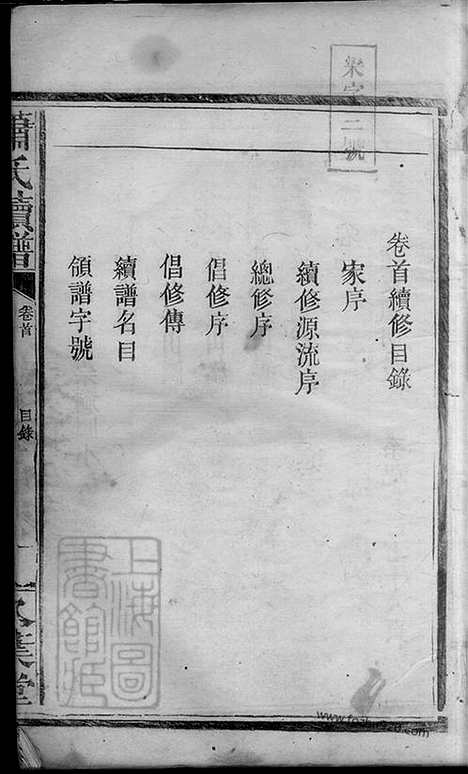 荣字二號
卷首續修目錄
家序
續修源流序
總修序
倡修序
倡修傳
續譜名目
領譜字號
蕭氏續譜
卷首
目錄
一
上海圖
書館藏